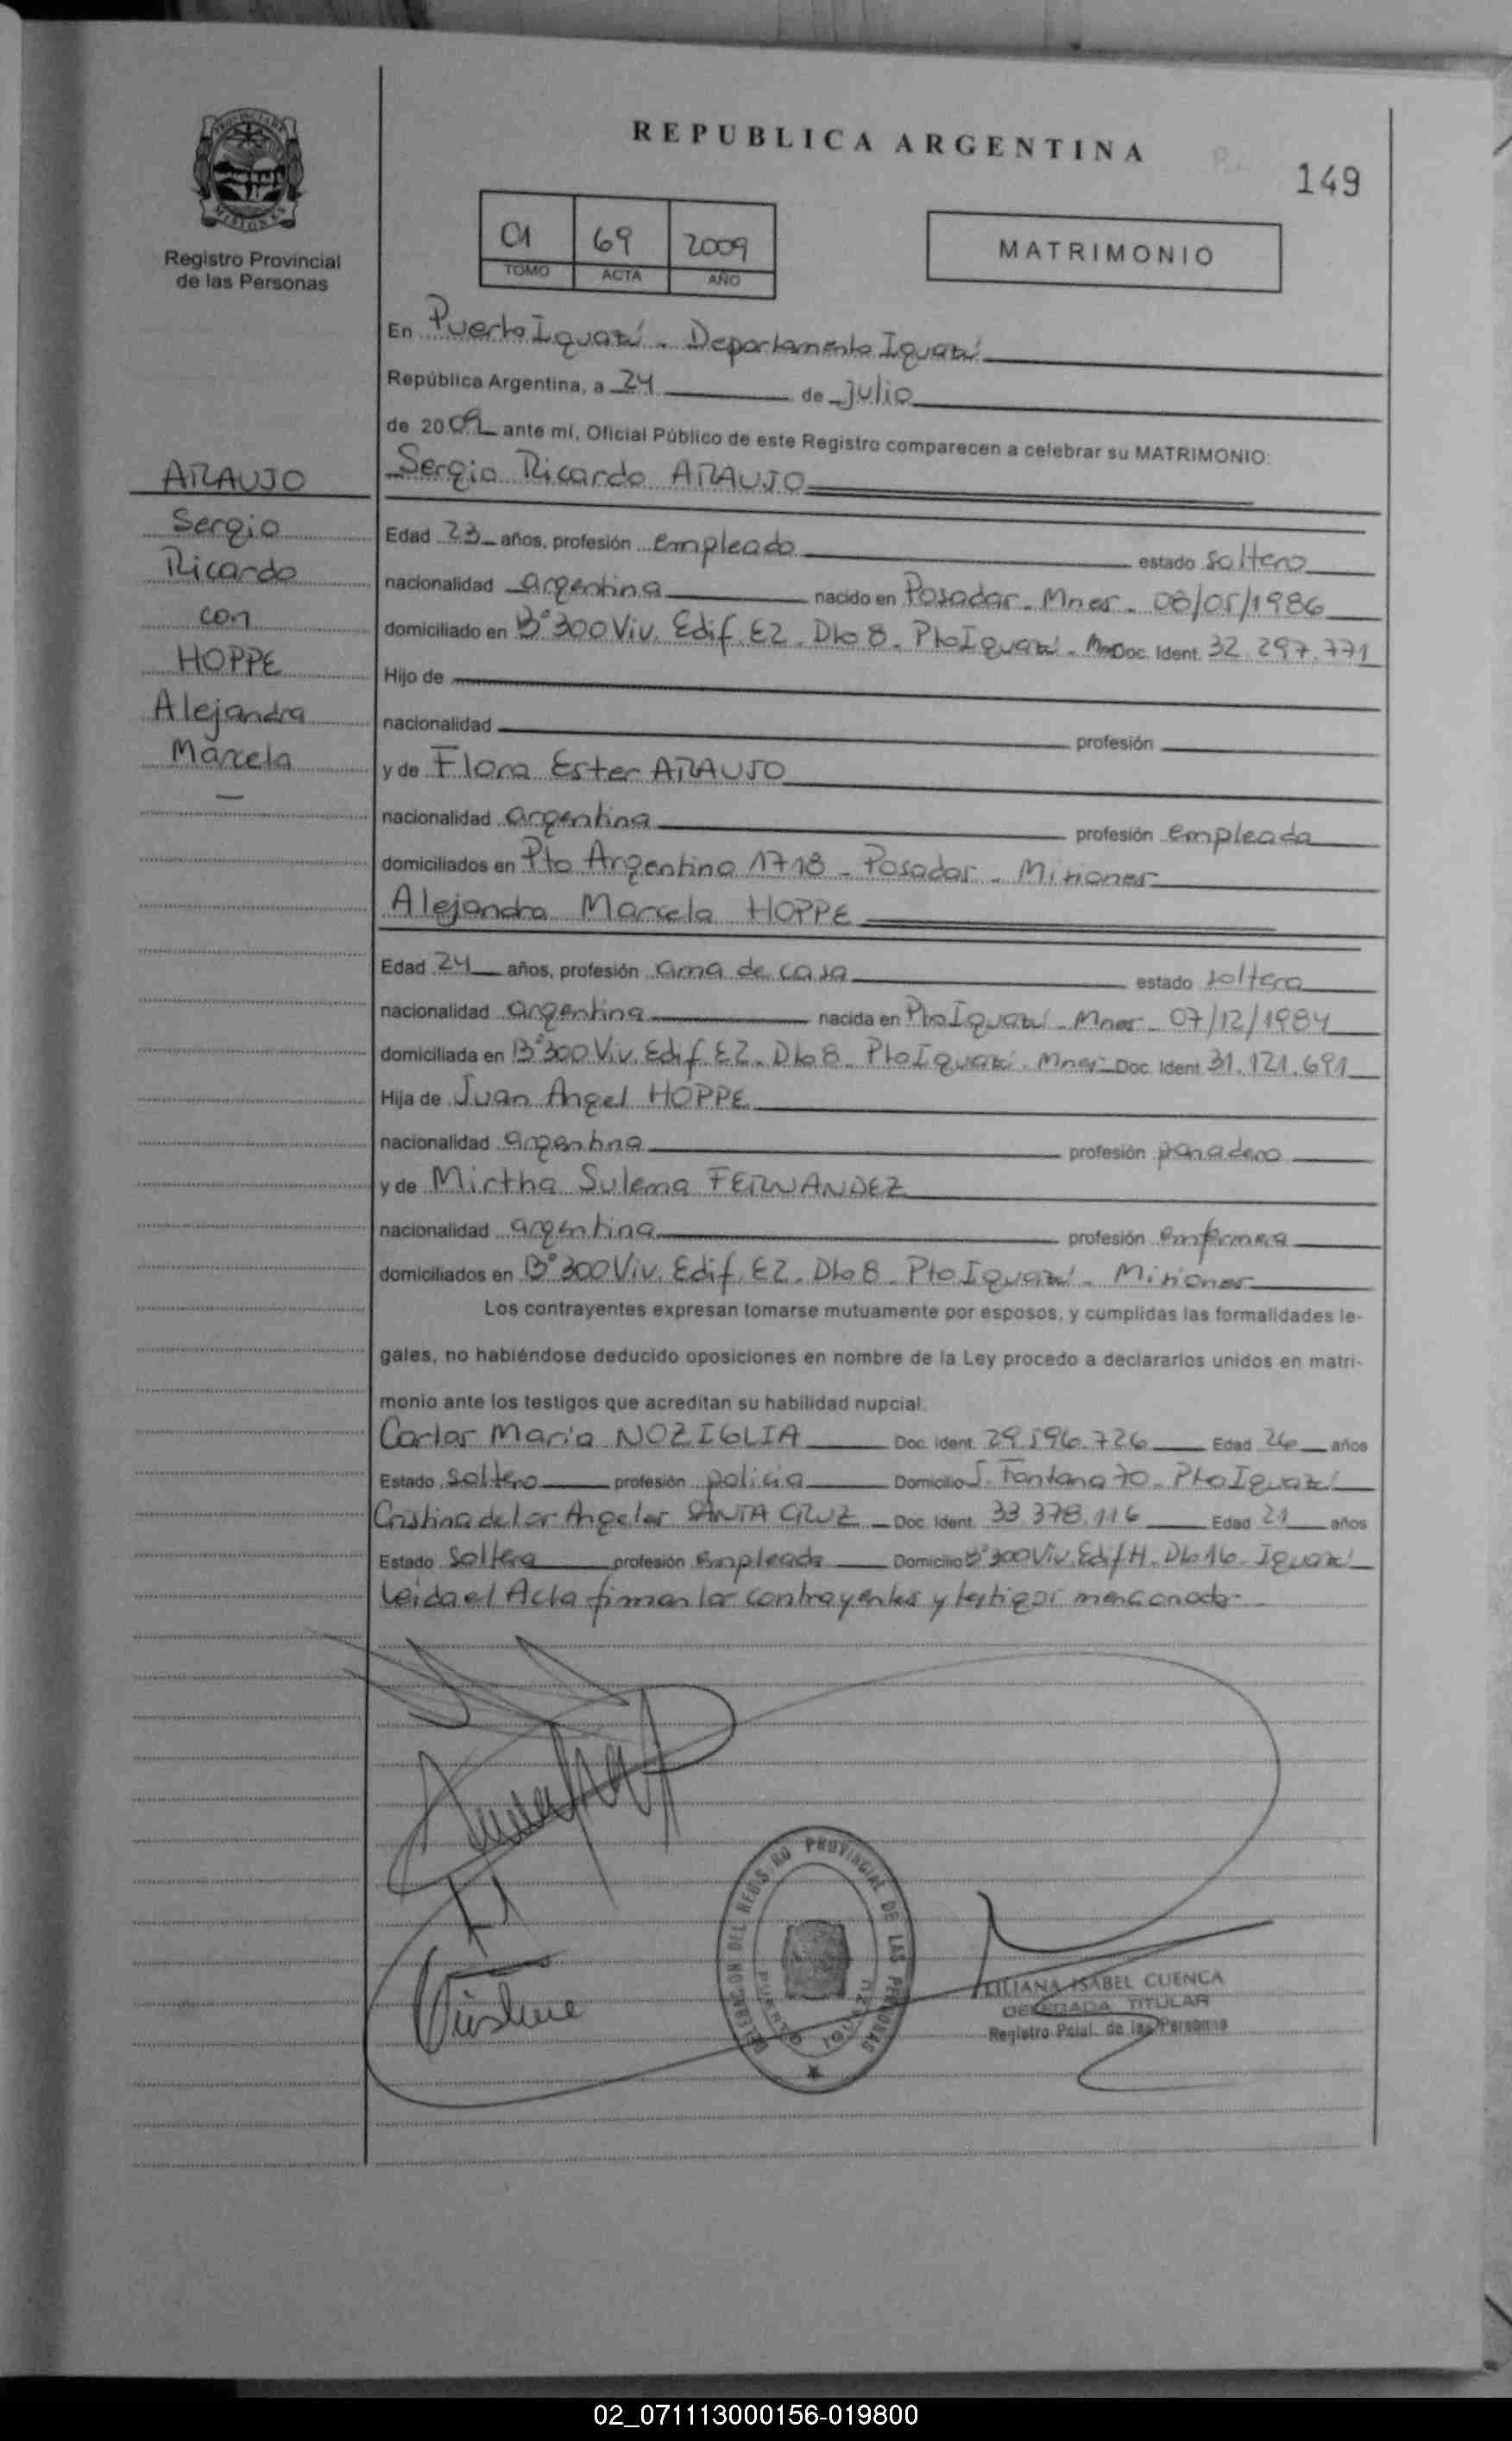 REPUBLICA ARGENTINA
149
Registro Provincial
de las Personas
01 69 2009
TOMO ACTA AÑO
MATRIMONIO
En Puerto Iguazú - Departamento Iguazú
República Argentina, a 24 de Julio
de 2009 ante mí, Oficial Público de este Registro comparecen a celebrar su MATRIMONIO:
ARAUJO
Sergio
Ricardo
con
HOPPE
Alejandra
Marcela
Sergio Ricardo ARAUJO
Edad 23 años, profesión empleado estado soltero
nacionalidad argentina nacido en Posadas - Mnes - 08/05/1986
domiciliado en B° 300 Viv. Edif. E2 - Dto 8 - Pto Iguazú - Mnes Doc. Ident. 32.297.771
Hijo de
nacionalidad profesión
y de Flora Ester ARAUJO
nacionalidad argentina profesión empleada
domiciliados en Pto Argentino 1718 - Posadas - Misiones
Alejandra Marcela HOPPE
Edad 24 años, profesión ama de casa estado soltera
nacionalidad argentina nacida en Pto Iguazú - Mnes - 07/12/1984
domiciliada en B° 300 Viv. Edif. E2 - Dto 8 - Pto Iguazú - Mnes - Doc. Ident. 31.121.691
Hija de Juan Angel HOPPE
nacionalidad argentina profesión panadero
y de Mirtha Sulema FERNANDEZ
nacionalidad argentina profesión enfermera
domiciliados en B° 300 Viv. Edif. E2 - Dto 8 - Pto Iguazú - Misiones
Los contrayentes expresan tomarse mutuamente por esposos, y cumplidas las formalidades le-
gales, no habiéndose deducido oposiciones en nombre de la Ley procedo a declararlos unidos en matri-
monio ante los testigos que acreditan su habilidad nupcial.
Carlos María NOZIGLIA Doc. Ident. 29.596.726 Edad 26 años
Estado soltero profesión policía Domicilio J. Fontana 70 - Pto Iguazú
Cristina de los Angeles SANTA CRUZ Doc. Ident. 33.378.116 Edad 21 años
Estado soltera profesión empleada Domicilio B° 300 Viv. Edif H - Dto 16 - Iguazú
Leida el Acta firman los contrayentes y testigos mencionados
DELEGACION DEL REGISTRO PROVINCIAL DE LAS PERSONAS
PUERTO IGUAZU
LILIANA ISABEL CUENCA
DELEGADA TITULAR
Registro Pcial. de las Personas
02_071113000156-019800